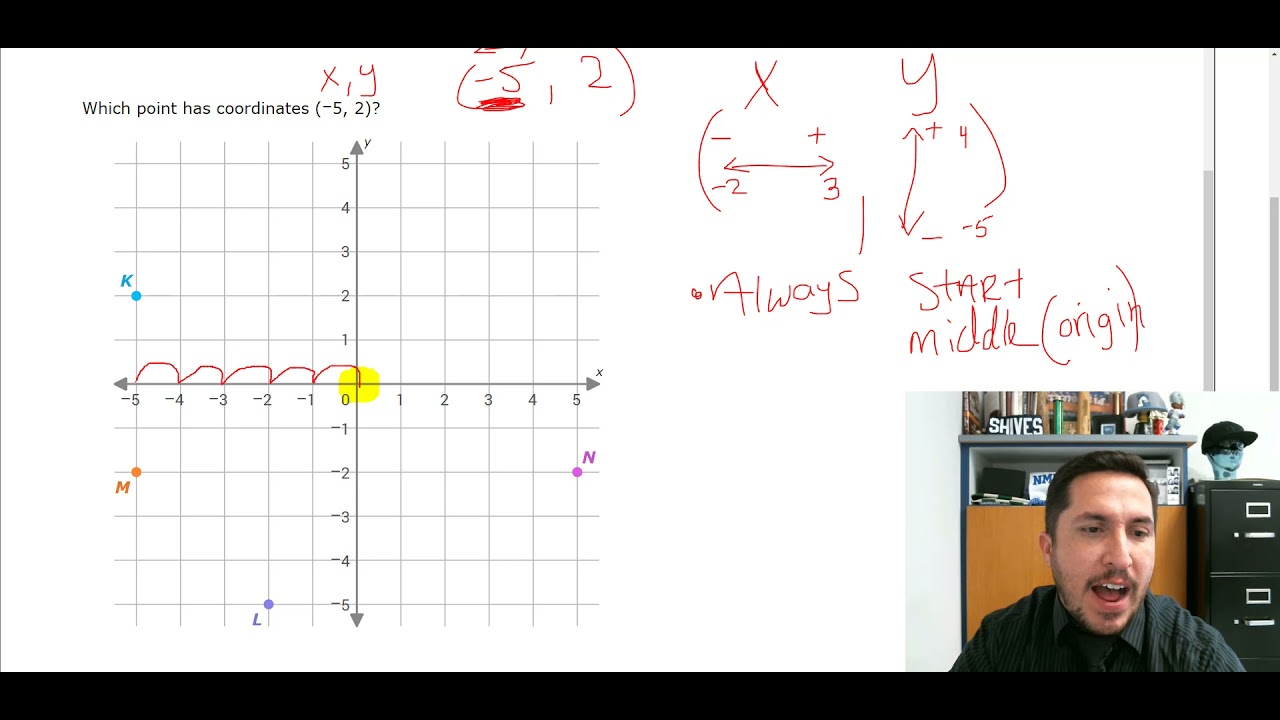 x, y (-5, 2) X y
Which point has coordinates (−5, 2)?
( − + + 4 )
-2 3
− -5
• Always START
middle (origin)
y
5
4
3
K
2
1
x
−5 −4 −3 −2 −1 0 1 2 3 4 5
−1
N
−2
M
−3
−4
−5
L
SHIVES